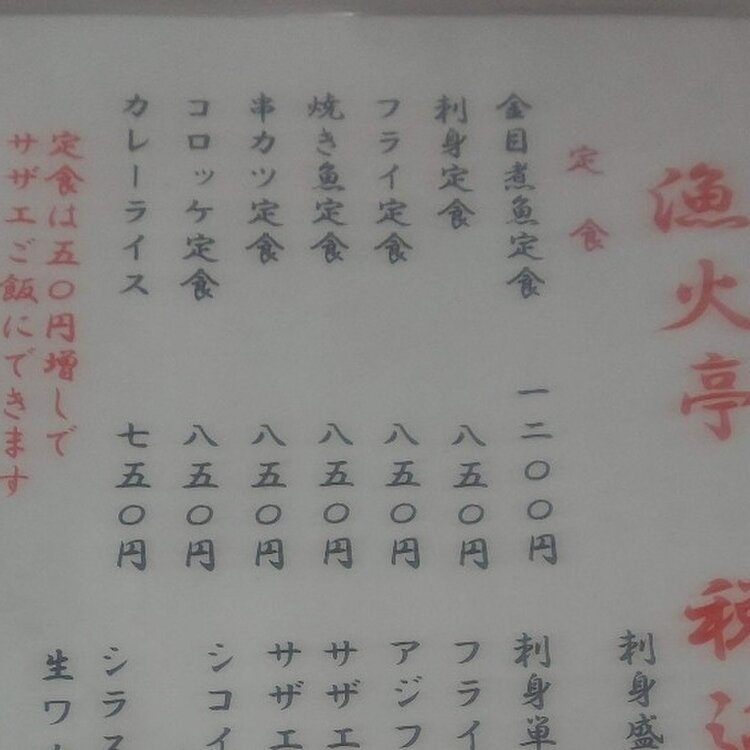 漁火亭
税込
定食
金目煮魚定食 一二〇〇円
刺身定食 八五〇円
フライ定食 八五〇円
焼き魚定食 八五〇円
串カツ定食 八五〇円
コロッケ定食 八五〇円
カレーライス 七五〇円
定食は五〇円増しで
サザエご飯にできます
刺身盛
刺身単
フライ
アジフ
サザエ
サザエ
シコイ
シラス
生ワ